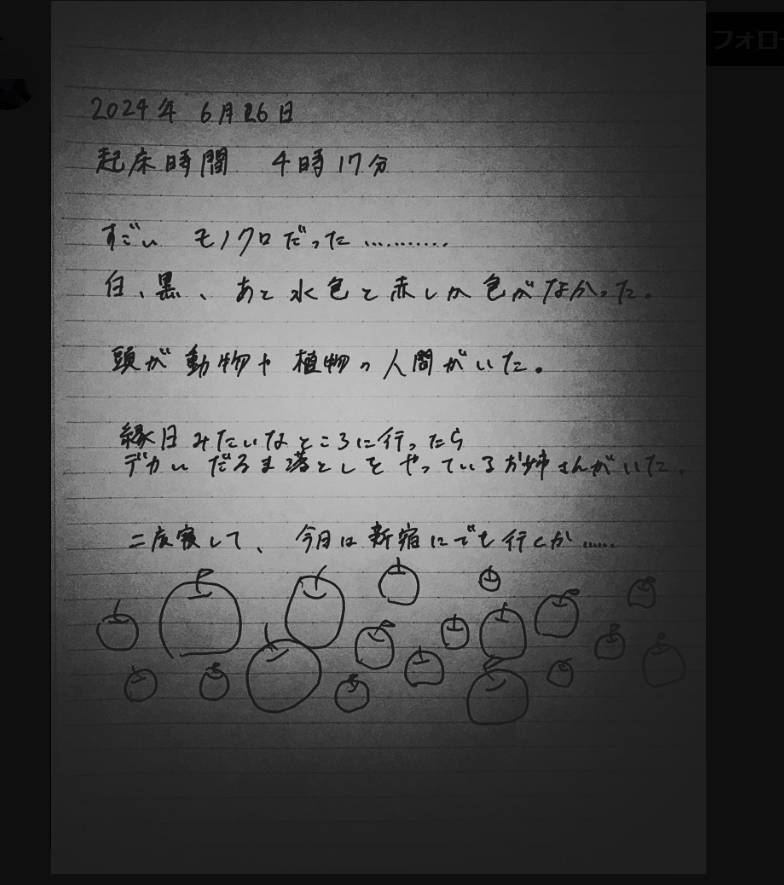 フォロー
2024年 6月26日
起床時間 4時17分
すごい モノクロだった...........
白、黒、あと水色と赤しか色がなかった。
頭が動物や植物の人間がいた。
縁日みたいなところに行ったら
デカいだるま落としをやっているお姉さんがいた。
二度寝して、今日は新宿にでも行くか......